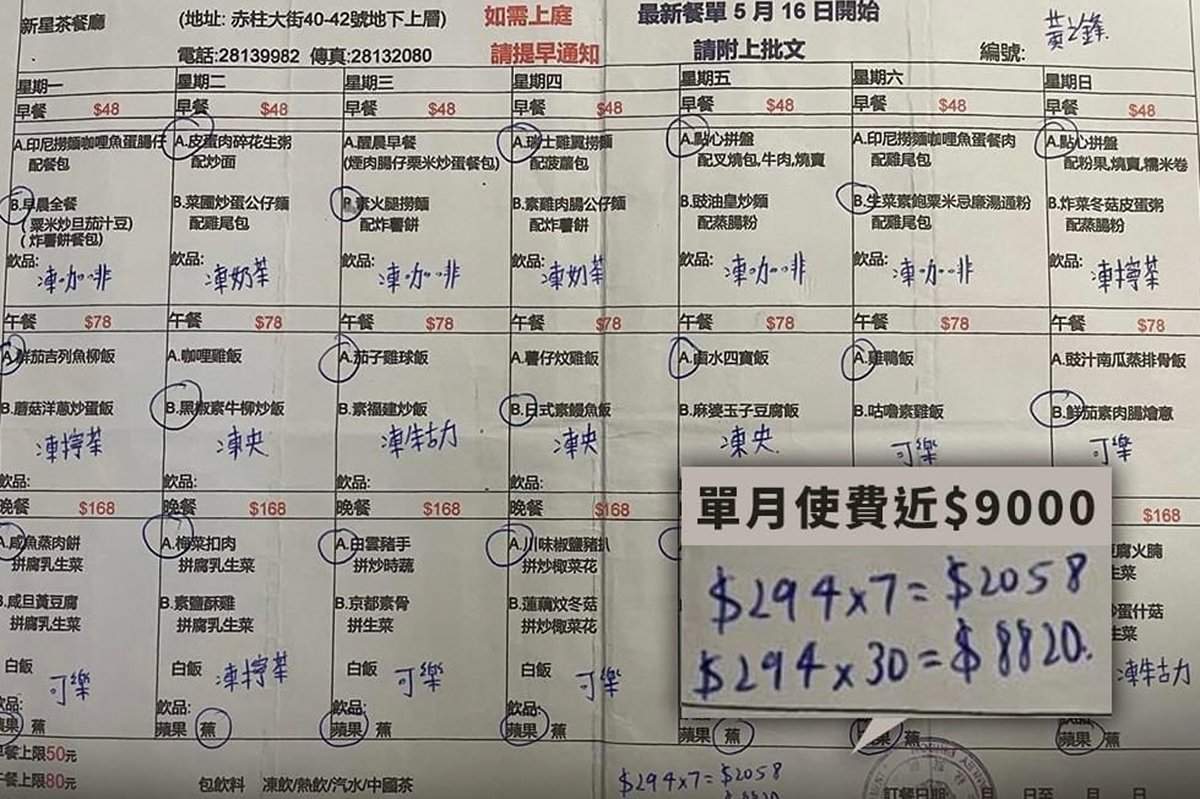 新星茶餐廳 (地址: 赤柱大街40-42號地下上層) 如需上庭 最新餐單 5 月 16 日開始 黃之鋒
電話:28139982 傳真:28132080 請提早通知 請附上批文 編號:
星期一 星期二 星期三 星期四 星期五 星期六 星期日
早餐 $48 早餐 $48 早餐 $48 早餐 $48 早餐 $48 早餐 $48 早餐 $48
A.印尼撈麵咖哩魚蛋腸仔 A.皮蛋肉碎花生粥 A.醒晨早餐 A.瑞士雞翼撈麵 A.點心拼盤 A.印尼撈麵咖哩魚蛋餐肉 A.點心拼盤
配餐包 配炒面 (煙肉腸仔栗米炒蛋餐包) 配菠蘿包 配叉燒包,牛肉,燒賣 配雞尾包 配粉果,燒賣,糯米卷
B.早晨全餐 B.菜圃炒蛋公仔麵 B.素火腿撈麵 B.素雞肉腸公仔麵 B.豉油皇炒麵 B.生菜素鮑粟米忌廉湯通粉 B.炸菜冬菇皮蛋粥
(粟米炒旦茄汁豆) 配雞尾包 配炸薯餅 配炸薯餅 配蒸腸粉 配雞尾包 配蒸腸粉
(炸薯餅餐包)
飲品: 飲品: 飲品: 飲品: 飲品: 飲品: 飲品:
凍咖啡 凍奶茶 凍咖啡 凍奶茶 凍咖啡 凍咖啡 凍檸茶
午餐 $78 午餐 $78 午餐 $78 午餐 $78 午餐 $78 午餐 $78 午餐 $78
A.鮮茄吉列魚柳飯 A.咖哩雞飯 A.茄子雞球飯 A.薯仔炆雞飯 A.鹵水四寶飯 A.雞鴨飯 A.豉汁南瓜蒸排骨飯
B.蘑菇洋蔥炒蛋飯 B.黑椒素牛柳炒飯 B.素福建炒飯 B.日式素鰻魚飯 B.麻婆玉子豆腐飯 B.咕嚕素雞飯 B.鮮茄素肉腸燴意
凍檸茶 凍央 凍朱古力 凍央 凍央 可樂 可樂
飲品: 飲品: 飲品: 飲品:
晚餐 $168 晚餐 $168 晚餐 $168 晚餐 $168 $168
A.咸魚蒸肉餅 A.梅菜扣肉 A.白雲豬手 A.川味椒鹽豬扒 腐火腩
拼腐乳生菜 拼腐乳生菜 拼炒時蔬 拼炒椰菜花 生菜
B.咸旦黃豆腐 B.素鹽酥雞 B.京都素骨 B.蓮藕炆冬菇 炒蛋什菇
拼腐乳生菜 拼腐乳生菜 拼生菜 拼炒椰菜花 生菜
白飯 白飯 白飯 白飯
可樂 凍檸茶 可樂 可樂 凍朱古力
飲品: 飲品: 飲品: 飲品: 飲品:
蘋果 蕉 蘋果 蕉 蘋果 蕉 蘋果 蕉 蘋果 蕉 蘋果 蕉 蘋果 蕉
單月使費近$9000
$294x7=$2058
$294x30=$8820.
早餐上限50元
午餐上限80元 包飲料 凍飲/熱飲/汽水/中國茶
$294x7=$2058
訂餐日期: 月 日至 月 日